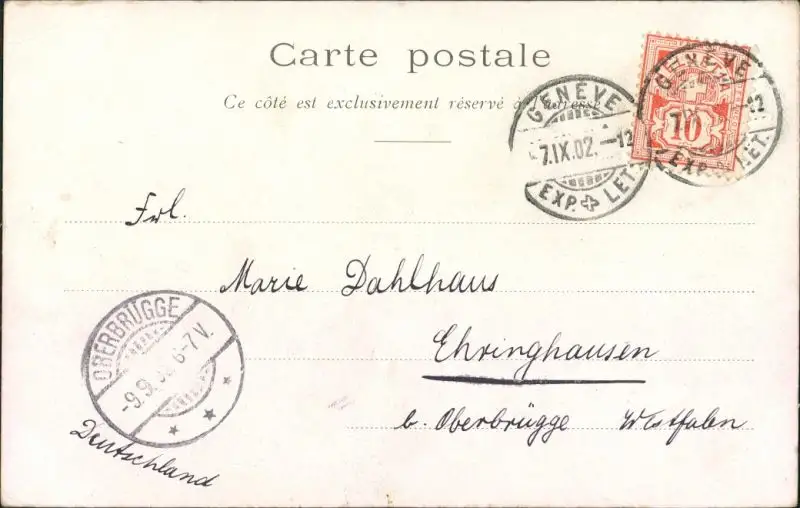 Carte postale
Ce côté est exclusivement réservé à l'adresse
GENÈVE
7.IX.02.–12
EXP. LET.
GENÈVE
7.IX
–12
EXP. LET.
10
Frl.
Marie Dahlhaus
Ehringhausen
b. Oberbrügge Westfalen
OBERBRÜGGE
-9.9. 6-7V.
Deutschland